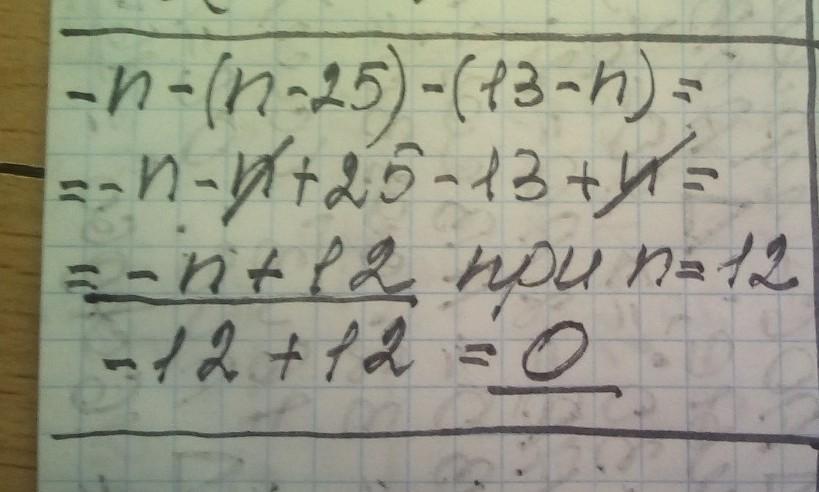 -n-(n-25)-(13-n)=
=-n-n+25-13+n=
=-n+12 при n=12
-12+12=0